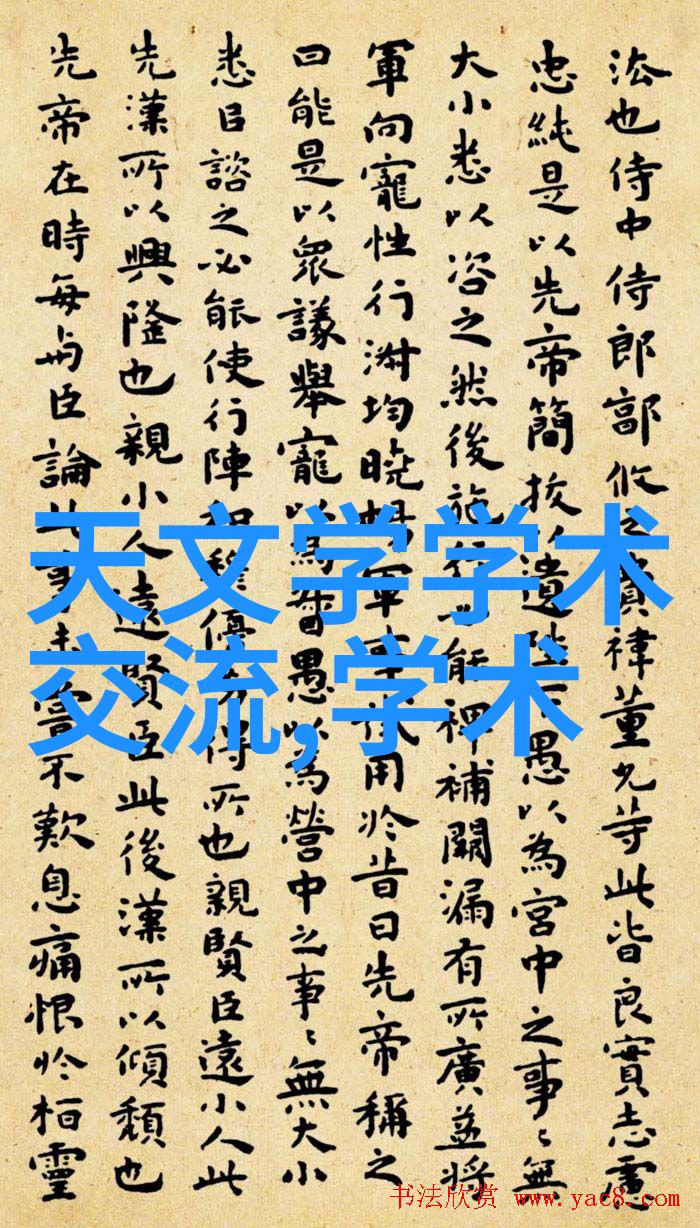 法也侍中侍郎郭攸之費禕董允等此皆良實志慮
忠純是以先帝簡拔以遺陛下愚以為宮中之事〻無
大小悉以咨之然後施行必能裨補闕漏有所廣益將
軍向寵性行淑均曉暢軍事試用於昔日先帝稱之
曰能是以眾議舉寵以為督愚以為營中之事〻無大小
悉㠯諮之必能使行陣和穆優劣得所也親賢臣遠小人此
先漢所以興隆也親小人遠賢臣此後漢所以傾頹也
先帝在時每與臣論此事未嘗不歎息痛恨於桓靈
天文学学术
交流,学术
书法欣赏 www.yac8.com